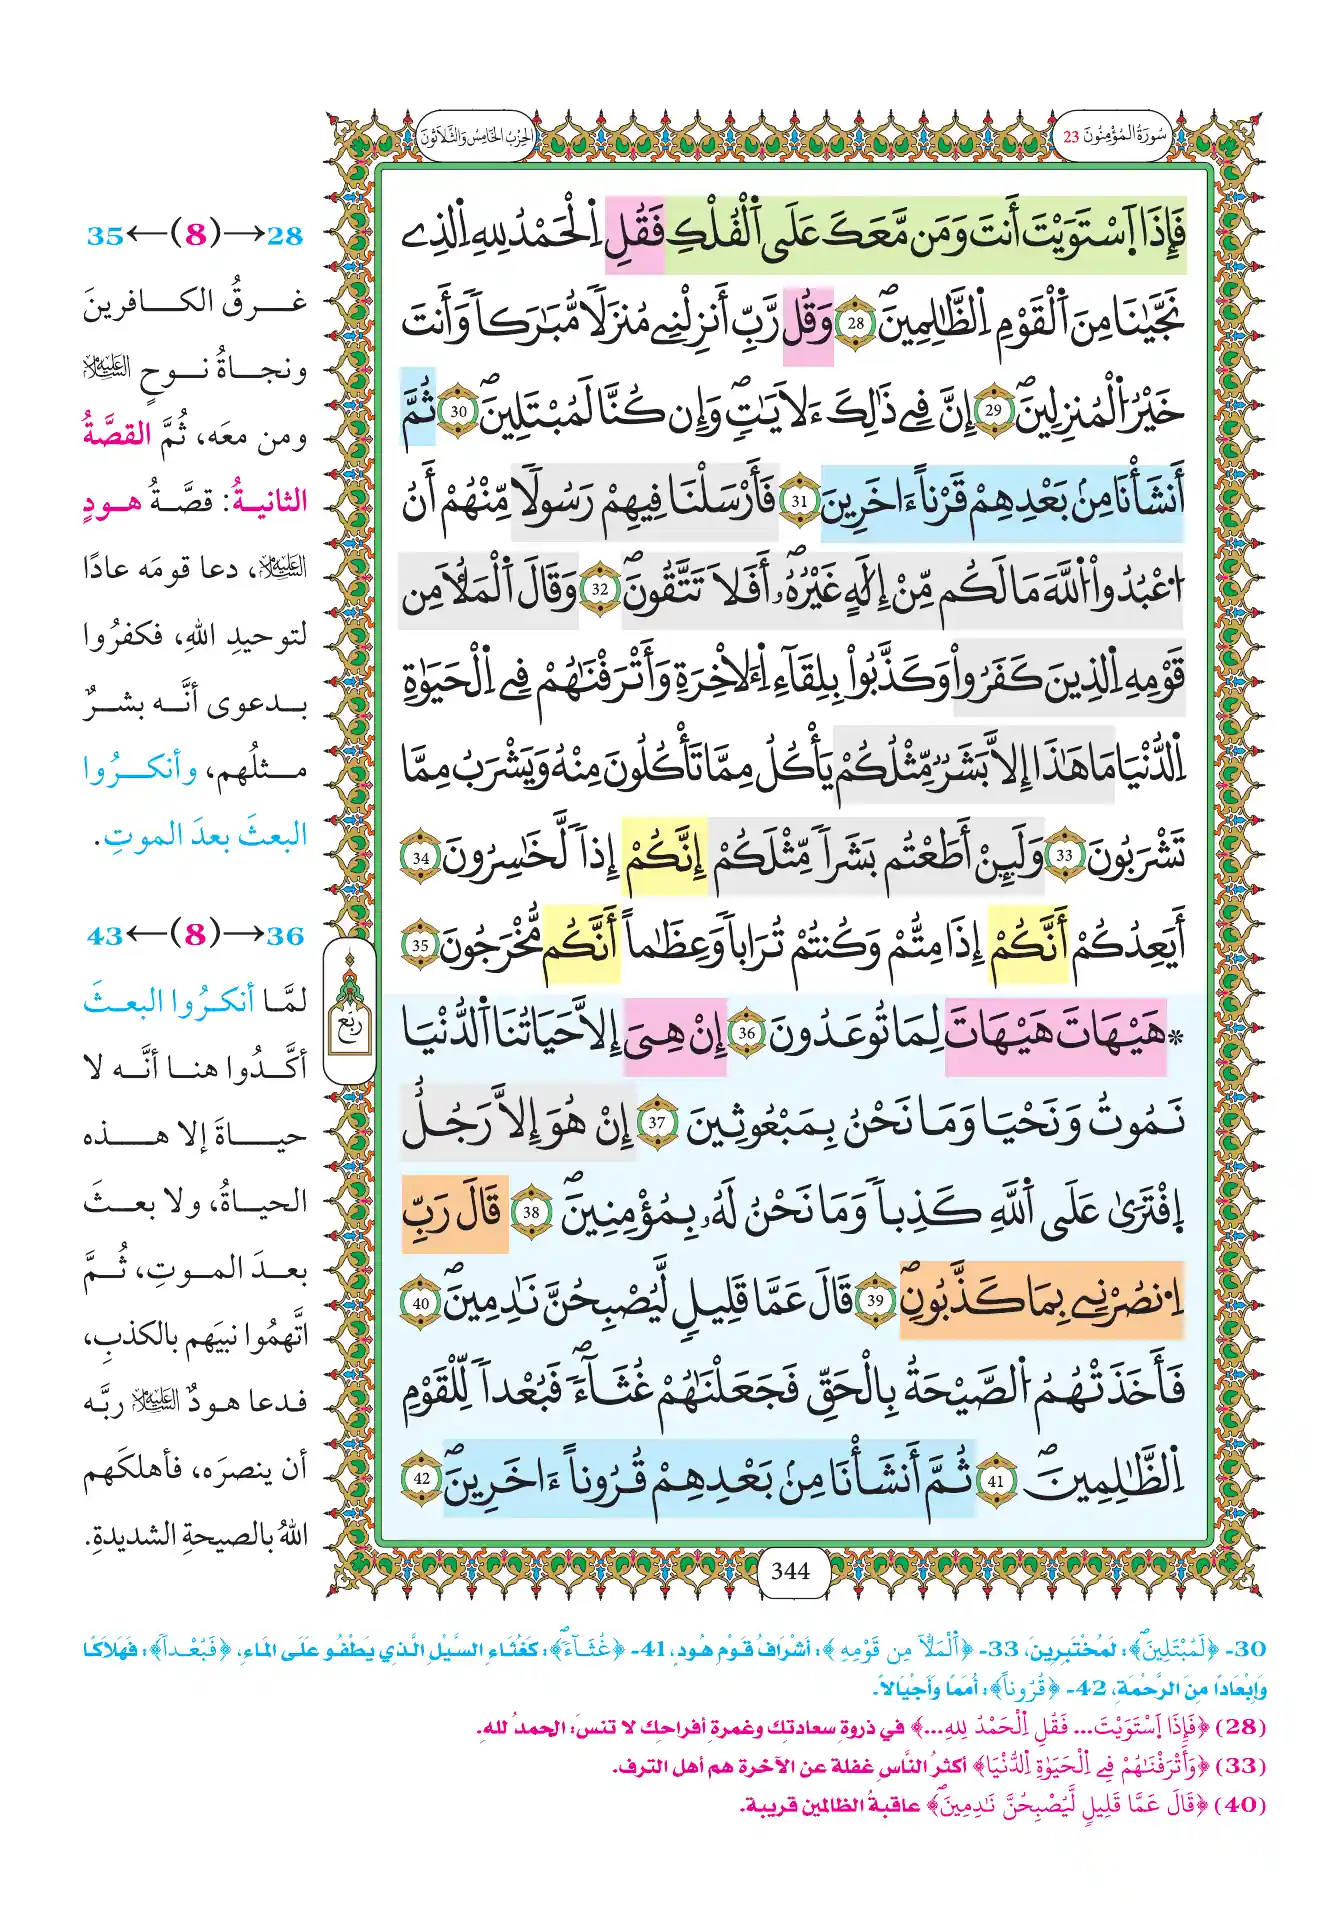 سُورَةُ المُؤْمِنُونَ 23
الحِزْبُ الخَامِسُ وَالثَّلَاثُونَ
فَإِذَا اَ۪سْتَوَيْتَ أَنتَ وَمَن مَّعَكَ عَلَى اَ۬لْفُلْكِ فَقُلِ اِ۬لْحَمْدُ لِلهِ اِ۬لذِے
نَجَّيٰنَا مِنَ اَ۬لْقَوْمِ اِ۬لظَّٰلِمِينَۖ 28 وَقُل رَّبِّ أَنزِلْنِے مُنزَلاٗ مُّبَٰرَكاٗ وَأَنتَ
خَيْرُ اُ۬لْمُنزِلِينَۖ 29 إِنَّ فِے ذَٰلِكَ ءَلَايَٰتٖۖ وَإِن كُنَّا لَمُبْتَلِينَۖ 30 ثُمَّ
أَنشَأْنَا مِنۢ بَعْدِهِمْ قَرْناً ءَاخَرِينَ 31 فَأَرْسَلْنَا فِيهِمْ رَسُولاٗ مِّنْهُمْ أَنُ
اُ۟عْبُدُواْ اُ۬للَّهَ مَا لَكُم مِّنِ اِلَٰهٍ غَيْرُهُۥٓۖ أَفَلَا تَتَّقُونَۖ 32 وَقَالَ اَ۬لْمَلَأُ مِن
قَوْمِهِ اِ۬لذِينَ كَفَرُواْ وَكَذَّبُواْ بِلِقَآءِ اِ۬لَاخِرَةِ وَأَتْرَفْنَٰهُمْ فِے اِ۬لْحَيَوٰةِ
اِ۬لدُّنْيَا مَا هَٰذَا إِلَّا بَشَرٞ مِّثْلُكُمْ يَأْكُلُ مِمَّا تَأْكُلُونَ مِنْهُ وَيَشْرَبُ مِمَّا
تَشْرَبُونَ 33 وَلَئِنْ أَطَعْتُم بَشَراٗ مِّثْلَكُمْ إِنَّكُمْ إِذاٗ لَّخَٰسِرُونَ 34
أَيَعِدُكُمْ أَنَّكُمْ إِذَا مِتُّمْ وَكُنتُمْ تُرَاباٗ وَعِظَٰماً أَنَّكُم مُّخْرَجُونَ 35
۞هَيْهَاتَ هَيْهَاتَ لِمَا تُوعَدُونَ 36 إِنْ هِىَ إِلَّا حَيَاتُنَا اَ۬لدُّنْيَا
نَمُوتُ وَنَحْيَا وَمَا نَحْنُ بِمَبْعُوثِينَ 37 إِنْ هُوَ إِلَّا رَجُلٌ
اِ۪فْتَرَىٰ عَلَى اَ۬للَّهِ كَذِباٗ وَمَا نَحْنُ لَهُۥ بِمُؤْمِنِينَۖ 38 قَالَ رَبِّ
اِ۟نصُرْنِے بِمَا كَذَّبُونِۖ 39 قَالَ عَمَّا قَلِيلٖ لَّيُصْبِحُنَّ نَٰدِمِينَۖ 40
فَأَخَذَتْهُمُ اُ۬لصَّيْحَةُ بِالْحَقِّ فَجَعَلْنَٰهُمْ غُثَآءٗۖ فَبُعْداٗ لِّلْقَوْمِ
اِ۬لظَّٰلِمِينَۖ 41 ثُمَّ أَنشَأْنَا مِنۢ بَعْدِهِمْ قُرُوناً ءَاخَرِينَۖ 42
ربع
344
28→(8)←35
غرقُ الكافرينَ
ونجاةُ نوحٍ عليه السلام
ومن معَه، ثُمَّ القصَّةُ
الثانيةُ: قصَّةُ هودٍ
عليه السلام، دعا قومَه عادًا
لتوحيدِ اللهِ، فكفرُوا
بدعوى أنَّه بشرٌ
مثلُهم، وأنكرُوا
البعثَ بعدَ الموتِ.
36→(8)←43
لمَّا أنكرُوا البعثَ
أكَّدُوا هنا أنَّه لا
حياةَ إلا هذه
الحياةُ، ولا بعثَ
بعدَ الموتِ، ثُمَّ
اتَّهمُوا نبيَهم بالكذبِ،
فدعا هودٌ عليه السلام ربَّه
أن ينصرَه، فأهلكَهم
اللهُ بالصيحةِ الشديدةِ.
30- ﴿لَمُبْتَلِينَۖ﴾: لَمُخْتَبِرِينَ، 33- ﴿اَ۬لْمَلَأُ مِن قَوْمِهِ﴾: أَشْرَافُ قَوْمِ هُودٍ، 41- ﴿غُثَآءٗۖ﴾: كَغُثَاءِ السَّيْلِ الَّذِي يَطْفُو عَلَى المَاءِ، ﴿فَبُعْداٗ﴾: فَهَلَاكًا
وَإِبْعَادًا مِنَ الرَّحْمَةِ، 42- ﴿قُرُوناً﴾: أُمَمًا وَأَجْيَالاً.
(28) ﴿فَإِذَا اَ۪سْتَوَيْتَ... فَقُلِ اِ۬لْحَمْدُ لِلهِ...﴾ في ذروةِ سعادتك وغمرةِ أفراحك لا تنسَ: الحمدُ للهِ.
(33) ﴿وَأَتْرَفْنَٰهُمْ فِے اِ۬لْحَيَوٰةِ اِ۬لدُّنْيَا﴾ أكثرُ النَّاسِ غفلة عن الآخرة هم أهل الترف.
(40) ﴿قَالَ عَمَّا قَلِيلٖ لَّيُصْبِحُنَّ نَٰدِمِينَۖ﴾ عاقبةُ الظالمين قريبة.